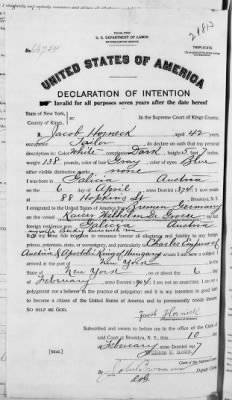 U. S. DEPARTMENT OF LABOR
TRIPLICATE
No.
UNITED STATES OF AMERICA
DECLARATION OF INTENTION
Invalid for all purposes seven years after the date hereof
State of New York,
County of Kings.
In the Supreme Court of Kings County.
I, Jacob Horneck, aged 42 years,
occupation Tailor, do declare on oath that my personal
description is: Color White, complexion Dark, height 5 feet 7 inches,
weight 138 pounds, color of hair Gray, color of eyes Blue
other visible distinctive marks none
I was born in Galicia Austria
on the 6 day of April, 1874; I now reside
at 88 Hopkins St, Brooklyn, N.Y.
I emigrated to the United States of America from Bremen Germany
on the vessel Kaiser Wilhelm De Grosse; my last
foreign residence was Galicia Austria
It is my bona fide intention to renounce forever all allegiance and fidelity to any foreign
prince, potentate, state, or sovereignty, and particularly to Charles Emperor of
Austria & Apostolic King of Hungary, of whom I am now a subject;
I arrived at the port of New York, in the
State of New York, on or about the 6 day
of February, anno Domini 1904; I am not an anarchist; I am not a
polygamist nor a believer in the practice of polygamy; and it is my intention in good faith
to become a citizen of the United States of America and to permanently reside therein:
SO HELP ME GOD.
Jacob Horneck
Subscribed and sworn to before me in the office of the Clerk of
said Court at Brooklyn, N. Y., this 10 day
of February, anno Domini 1917
[SEAL]
Clerk of the Supreme Court.